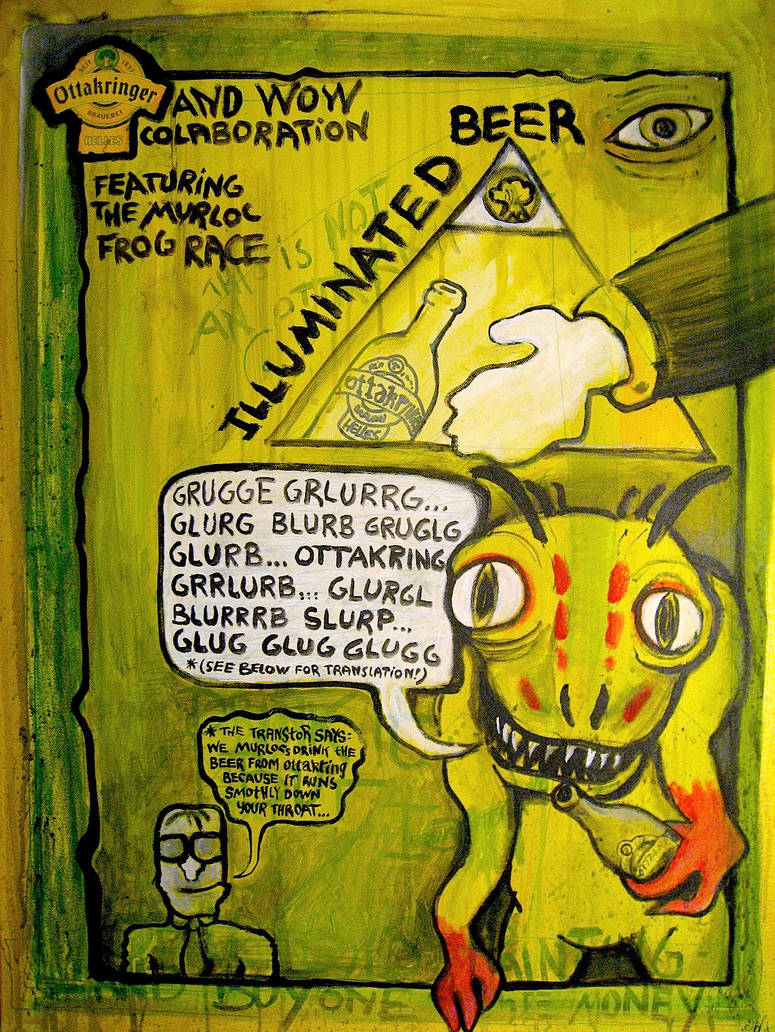 SEIT 1837
Ottakringer
BRAUEREI
HELLES
AND WOW
COLABORATION
FEATURING
THE MURLOC
FROG RACE
BEER
ILLUMINATED
THIS IS NOT
AN
ottakringer
HELLES
GRUGGE GRLURRG...
GLURG BLURB GRUGLG
GLURB... OTTAKRING
GRRLURB... GLURGL
BLURRRB SLURP...
GLUG GLUG GLUGG
*(SEE BELOW FOR TRANSLATION!)
* THE TRANSTOR SAYS:
WE MURLOCS DRINK THE
BEER FROM Ottakring
BECAUSE IT RUNS
SMOTHLY DOWN
YOUR THROAT...
BUY ONE
MONEY